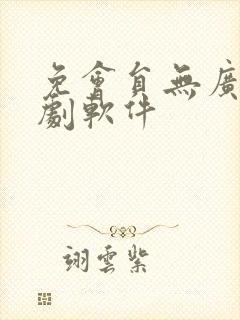 免會員無廣
劇軟件
翊雲紫